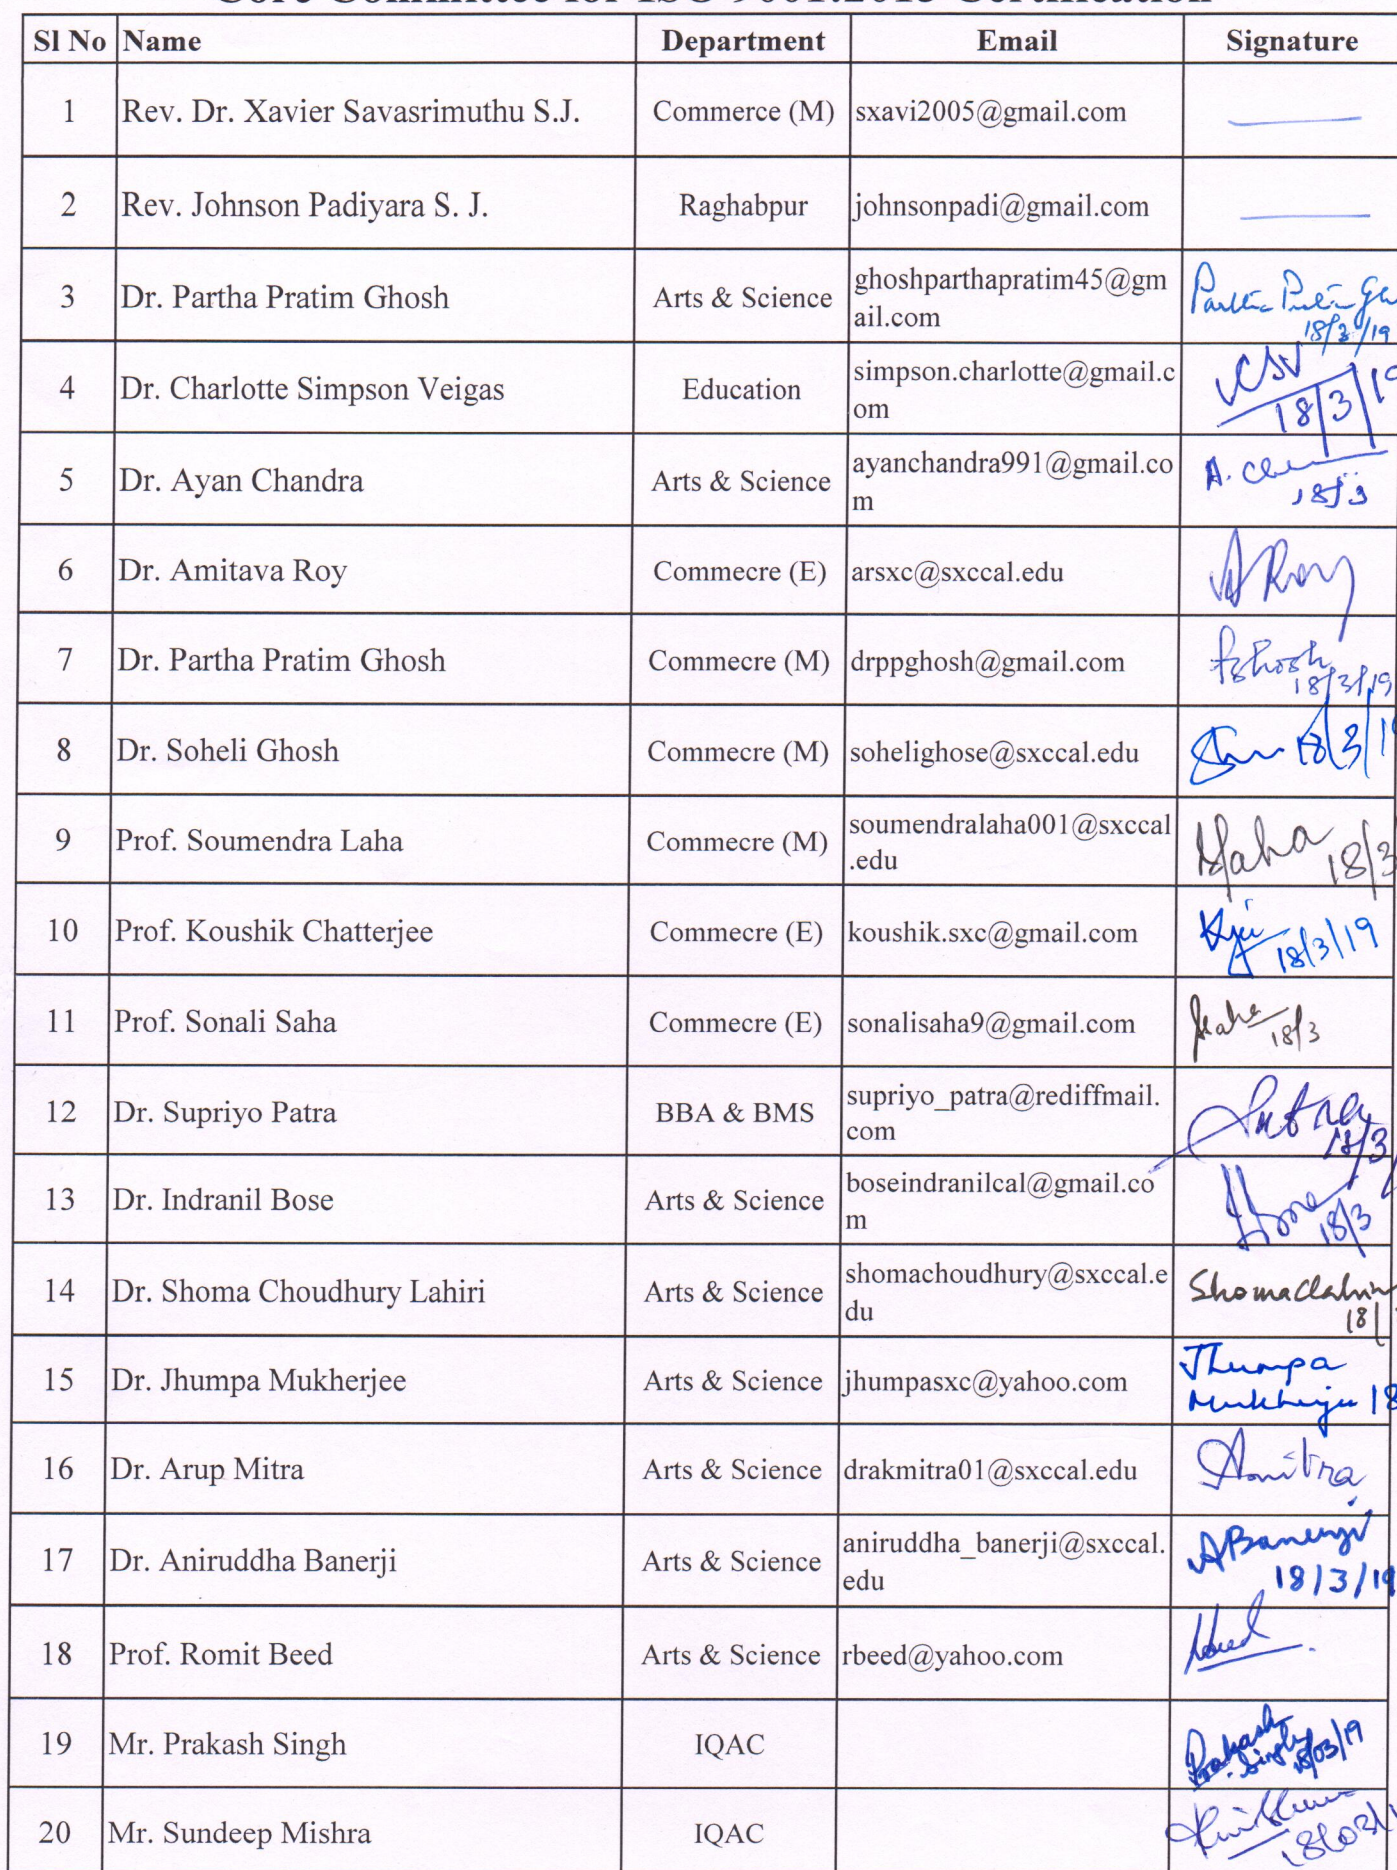 Core Committee for ISO 9001:2015 Certification
Sl No Name Department Email Signature
1 Rev. Dr. Xavier Savasrimuthu S.J. Commerce (M) sxavi2005@gmail.com
2 Rev. Johnson Padiyara S. J. Raghabpur johnsonpadi@gmail.com
3 Dr. Partha Pratim Ghosh Arts & Science ghoshparthapratim45@gm
ail.com
18/3/19
4 Dr. Charlotte Simpson Veigas Education simpson.charlotte@gmail.c
om
CSV
18/3/19
5 Dr. Ayan Chandra Arts & Science ayanchandra991@gmail.co
m
A.
18/3
6 Dr. Amitava Roy Commecre (E) arsxc@sxccal.edu ARoy
7 Dr. Partha Pratim Ghosh Commecre (M) drppghosh@gmail.com
18/3/19
8 Dr. Soheli Ghosh Commecre (M) sohelighose@sxccal.edu 18/3/1
9 Prof. Soumendra Laha Commecre (M) soumendralaha001@sxccal
.edu
18/3
10 Prof. Koushik Chatterjee Commecre (E) koushik.sxc@gmail.com
18/3/19
11 Prof. Sonali Saha Commecre (E) sonalisaha9@gmail.com
18/3
12 Dr. Supriyo Patra BBA & BMS supriyo_patra@rediffmail.
com
18/3/
13 Dr. Indranil Bose Arts & Science boseindranilcal@gmail.co
m
18/3
14 Dr. Shoma Choudhury Lahiri Arts & Science shomachoudhury@sxccal.e
du
18/
15 Dr. Jhumpa Mukherjee Arts & Science jhumpasxc@yahoo.com Jhumpa
Mukherjee 18
16 Dr. Arup Mitra Arts & Science drakmitra01@sxccal.edu Amitra
17 Dr. Aniruddha Banerji Arts & Science aniruddha_banerji@sxccal.
edu
ABanerji
18/3/19
18 Prof. Romit Beed Arts & Science rbeed@yahoo.com
19 Mr. Prakash Singh IQAC Prakash
Singh 18/03/19
20 Mr. Sundeep Mishra IQAC
18/03/1